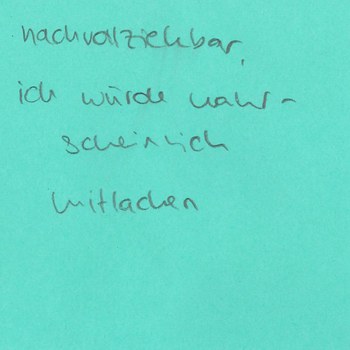 nachvollziehbar,
ich würde wahr-
scheinlich
mitlachen